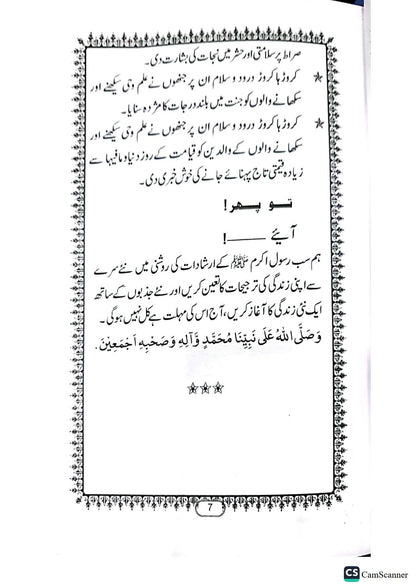 صراط پر سلامتی اور حشر میں نجات کی بشارت دی۔
★ کروڑ ہا کروڑ درود و سلام ان پر جنھوں نے علم وحی سیکھنے اور
سکھانے والوں کو جنت میں بلند درجات کا مژدہ سنایا۔
★ کروڑ ہا کروڑ درود و سلام ان پر جنھوں نے علم وحی سیکھنے اور
سکھانے والوں کے والدین کو قیامت کے روز دنیا و مافیہا سے
زیادہ قیمتی تاج پہنائے جانے کی خوش خبری دی۔
تو پھر!
آئیے ———!
ہم سب رسول اکرم ﷺ کے ارشادات کی روشنی میں نئے سرے
سے اپنی زندگی کی ترجیحات کا تعین کریں اور نئے جذبوں کے ساتھ
ایک نئی زندگی کا آغاز کریں، آج اس کی مہلت ہے کل نہیں ہوگی۔
وَصَلَّى اللهُ عَلَى نَبِيِّنَا مُحَمَّدٍ وَّآلِهِ وَصَحْبِهِ أَجْمَعِيْنَ.
★★★
7
CS CamScanner